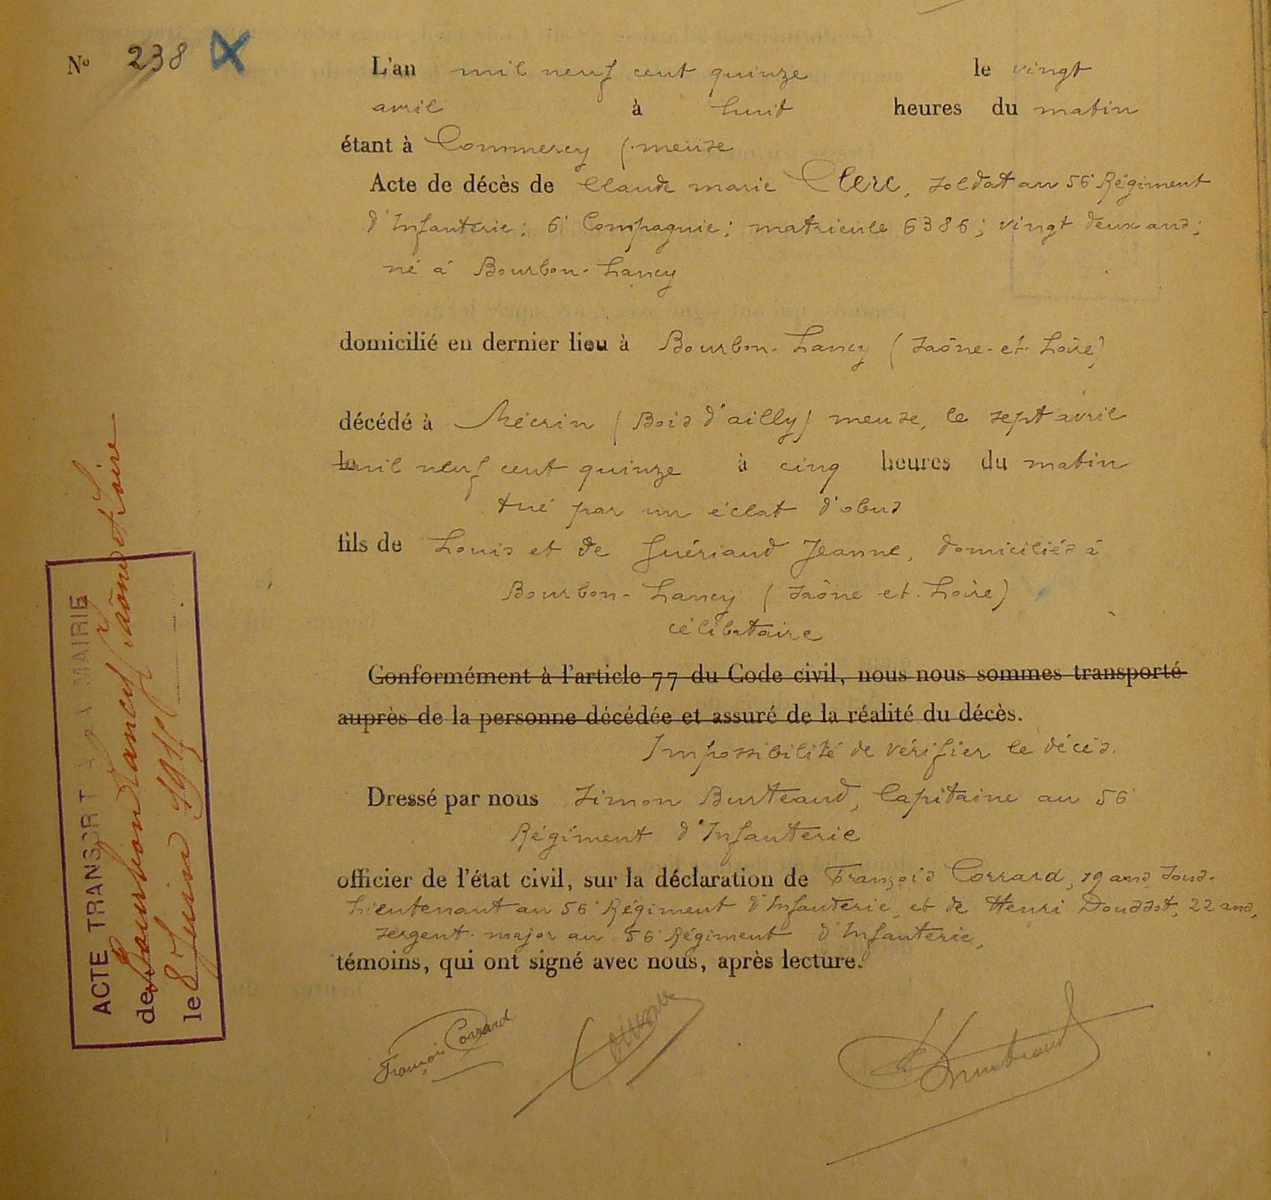 N° 238
L'an mil neuf cent quinze le vingt
avril à huit heures du matin
étant à Commercy (meuse
Acte de décès de Claude marie Clerc, soldat au 56e Régiment
d'Infanterie; 6e Compagnie; matricule 6386; vingt deux ans;
né à Bourbon-Lancy
domicilié en dernier lieu à Bourbon-Lancy (Saône-et-Loire)
décédé à Mécrin (Bois d'ailly) meuse, le sept avril
le mil neuf cent quinze à cinq heures du matin
tué par un éclat d'obus
fils de Louis et de Guériaud Jeanne, domiciliés à
Bourbon-Lancy (Saône-et-Loire)
célibataire
Conformément à l'article 77 du Code civil, nous nous sommes transporté
auprès de la personne décédée et assuré de la réalité du décès.
Impossibilité de vérifier le décès.
Dressé par nous Simon Burteaud, Capitaine au 56e
Régiment d'Infanterie
officier de l'état civil, sur la déclaration de François Corrard, 19 ans Sous-
Lieutenant au 56e Régiment d'Infanterie, et de Henri Doussot, 22 ans,
sergent-major au 56e Régiment d'Infanterie,
témoins, qui ont signé avec nous, après lecture.
François Corrard
ACTE TRANSCRIT A LA MAIRIE
de Bourbon Lancy Saône et Loire
le 8 Juin 1915